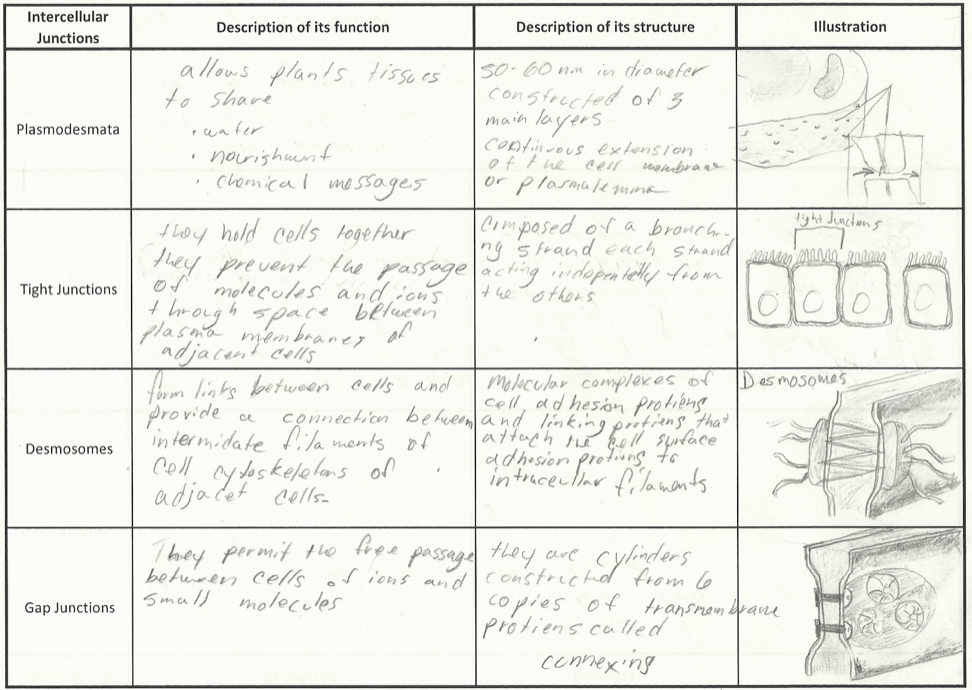 Intercellular Junctions
Description of its function
Description of its structure
Illustration
Plasmodesmata
allows plants tissues
to share
· water
· nourishment
· chemical messages
50-60 nm in diameter
constructed of 3
main layers
continuous extension
of the cell membrane
or plasmalemma
Tight Junctions
they hold cells together
they prevent the passage
of molecules and ions
through space between
plasma membranes of
adjacent cells
Composed of a branch-
ng strand each strand
acting indepntelly from
the others
tight junctions
Desmosomes
form links between cells and
provide a connection between
intermidate filaments of
cell cytoskeletons of
adjacet cells-
Molecular complexes of
cell adhesion protiens
and linking protiens that
attach the cell surface
adhesion protiens to
intracellar filaments
Desmosomes
Gap Junctions
They permit the free passage
between cells of ions and
small molecules
they are cylinders
constructed from 6
copies of transmembrane
protiens called
connexing